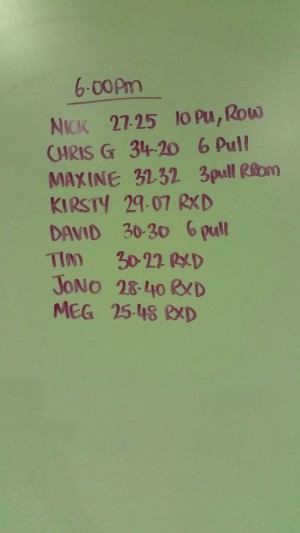 6.00pm
NICK 27-25 10 PU, ROW
CHRIS G 34-20 6 Pull
MAXINE 32-32 3pull RROM
KIRSTY 29.07 RXD
DAVID 30-30 6 pull
TIM 30-22 RXD
JONO 28-40 RXD
MEG 25.48 RXD